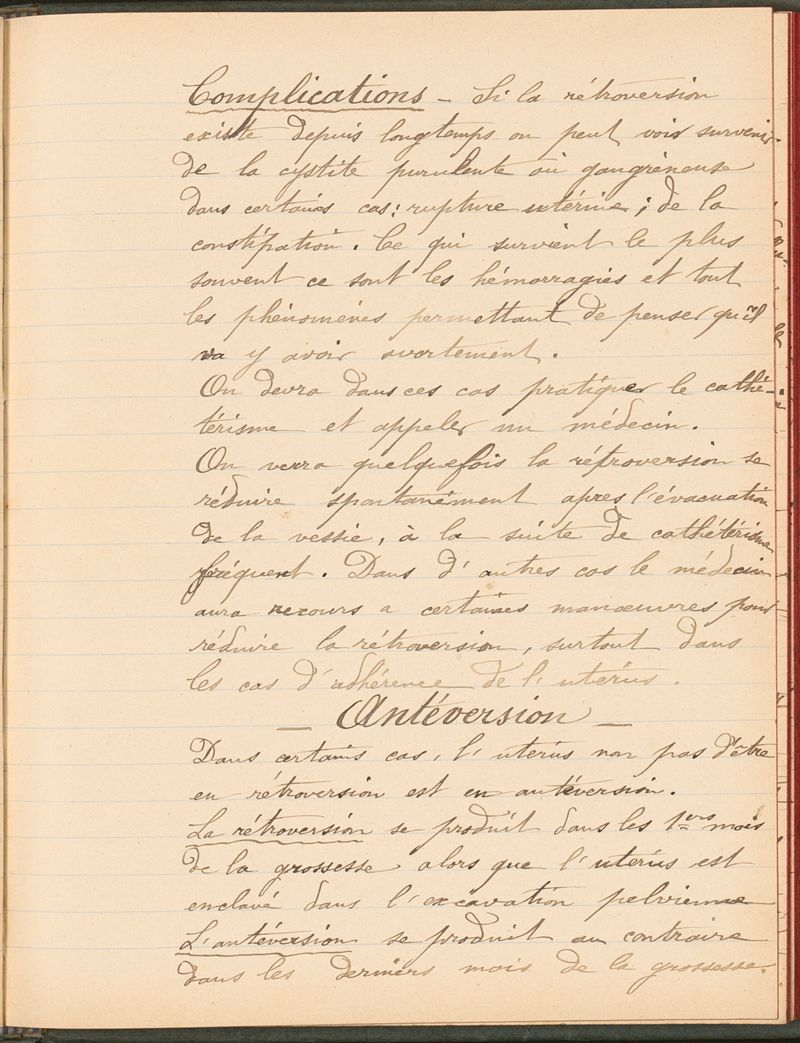 Complications - Si la rétroversion
existe depuis longtemps on peut voir survenir
de la cystite purulente ou gangréneuse
dans certains cas : rupture utérine ; de la
constipation. Ce qui survient le plus
souvent ce sont les hémorragies et tout
les phénomènes permettant de penser qu'il
va y avoir avortement.
On devra dans ces cas pratiquer le cathé-
térisme et appeler un médecin.
On verra quelquefois la rétroversion se
réduire spontanément après l'évacuation
de la vessie, à la suite de cathétérisme
fréquent. Dans d'autres cas le médecin
aura recours a certaines manœuvres pour
réduire la rétroversion, surtout dans
les cas d'adhérence de l'utérus.
- Antéversion -
Dans certains cas, l'utérus non pas d'être
en rétroversion est en antéversion.
La rétroversion se produit dans les 1ers mois
de la grossesse alors que l'utérus est
enclavé dans l'excavation pelvienne
L'antéversion se produit au contraire
dans les derniers mois de la grossesse.